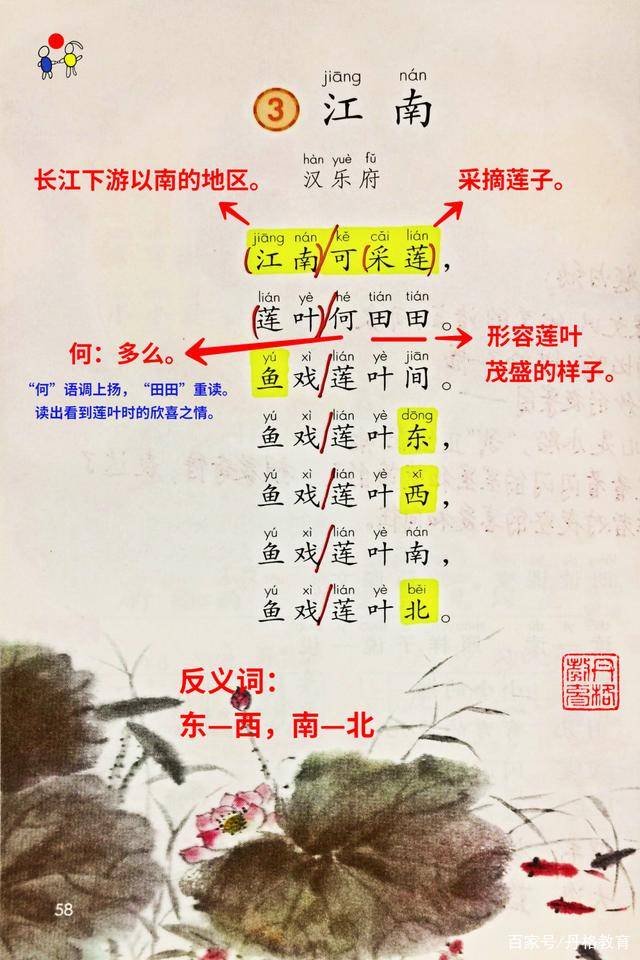 jiāng nán
3 江南
hàn yuè fǔ
汉乐府
长江下游以南的地区。
采摘莲子。
jiāng nán kě cǎi lián
(江南)/可(采莲)，
lián yè hé tián tián
(莲叶)/何田田。
何：多么。
形容莲叶
茂盛的样子。
“何”语调上扬，“田田”重读。
读出看到莲叶时的欣喜之情。
yú xì lián yè jiān
鱼戏/莲叶间。
yú xì lián yè dōng
鱼戏/莲叶东，
yú xì lián yè xī
鱼戏/莲叶西，
yú xì lián yè nán
鱼戏/莲叶南，
yú xì lián yè běi
鱼戏/莲叶北。
反义词：
东—西，南—北
丹格教育
58
百家号/丹格教育